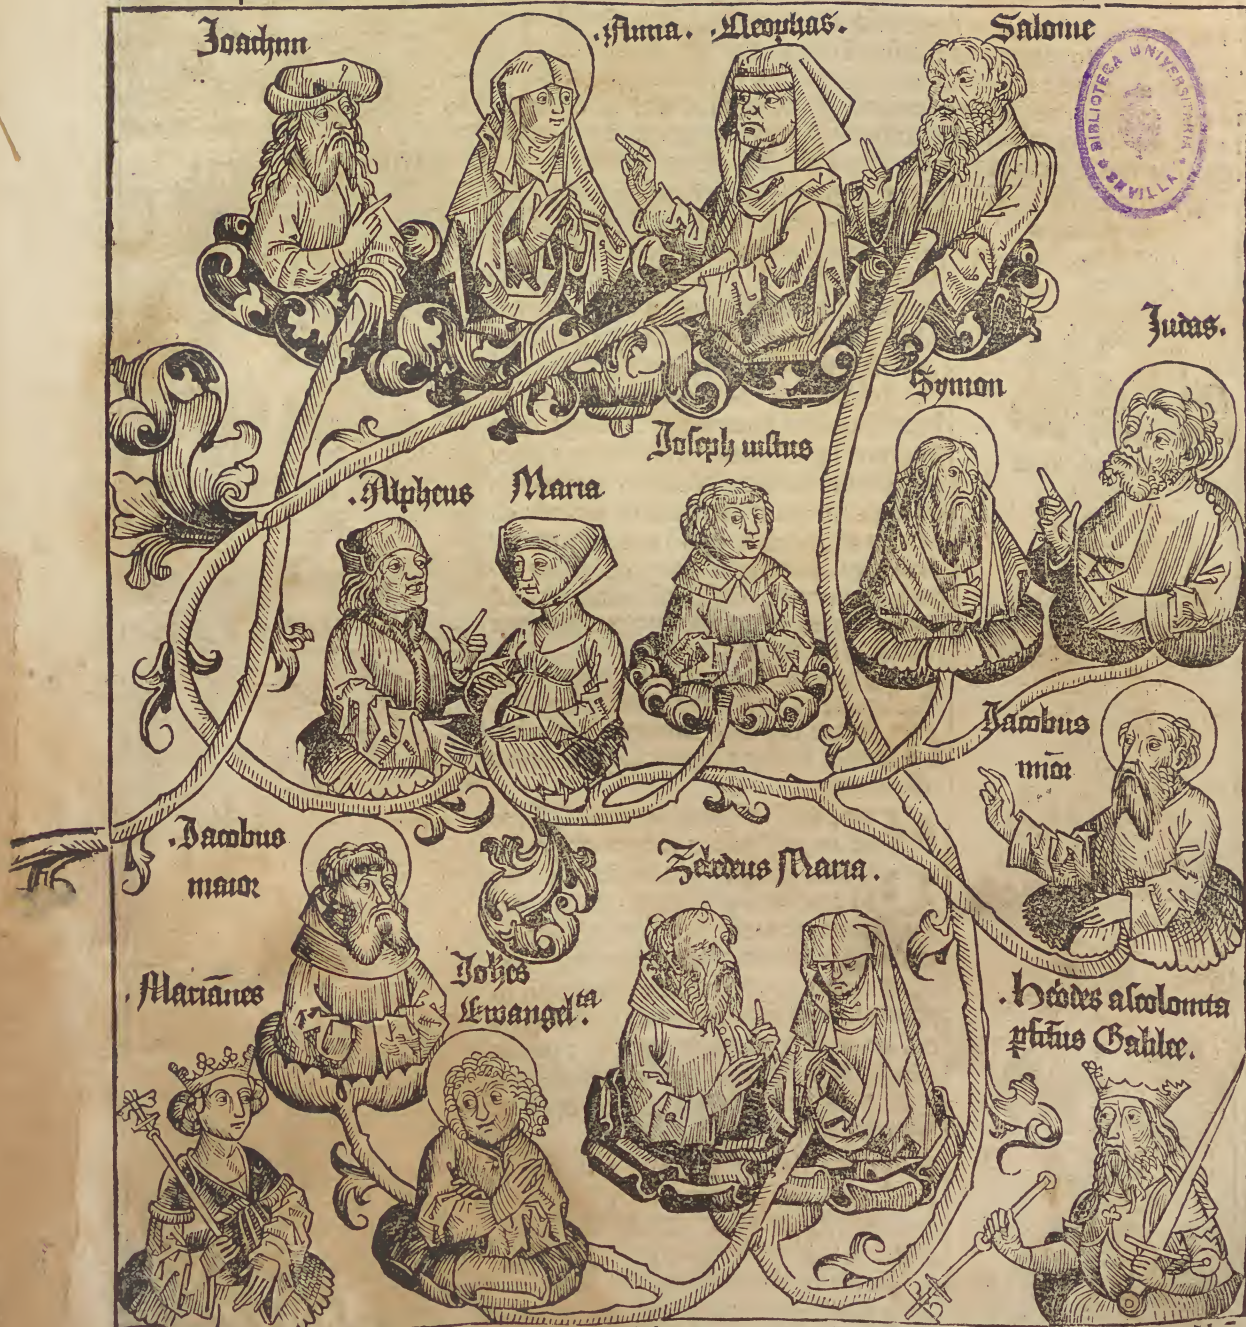 Joachim
.Anna. .Cleophas.
Salome
BIBLIOTECA UNIVERSITARIA
SEVILLA
Judas.
Symon
Joseph iustus
.Alpheus Maria
Jacobus
mīor
.Jacobus
maior
Zebedeus Maria.
Johēs
Ewangel.ta
.Mariānes
.Hērodes ascolonita
Galilee.